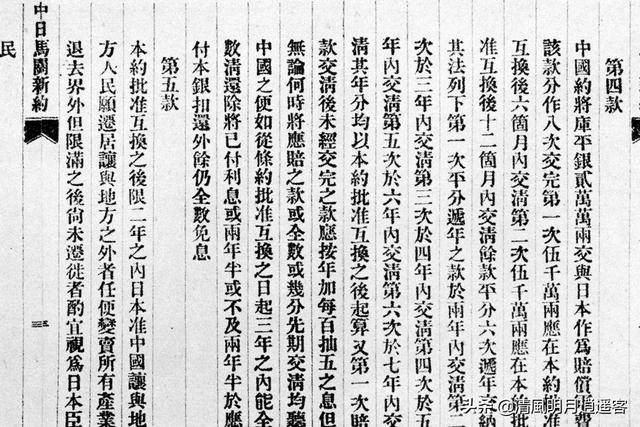 第四款
中國約將庫平銀貳萬萬兩交與日本作為賠償軍費
該款分作八次交完第一次伍千萬兩應在本約批准
互換後六箇月內交清第二次伍千萬兩應在本約批
准互換後十二箇月內交清餘款平分六次遞年交納
其法列下第一次平分遞年之款於兩年內交清第二
次於三年內交清第三次於四年內交清第四次於五
年內交清第五次於六年內交清第六次於七年內交
清其年分均以本約批准互換之後起算又第一次賠
款交清後未經交完之款應按年加每百抽五之息但
無論何時將應賠之款或全數或幾分先期交清均聽
中國之便如從條約批准互換之日起三年之內能全
數清還除將已付利息或兩年半或不及兩年半於應
付本銀扣還外餘仍全數免息
第五款
本約批准互換之後限二年之內日本准中國讓與地
方人民願遷居讓與地方之外者任便變賣所有產業
退去界外但限滿之後尚未遷徙者酌宜視為日本臣
民
中日馬關新約
三
头条@清風明月逍遥客